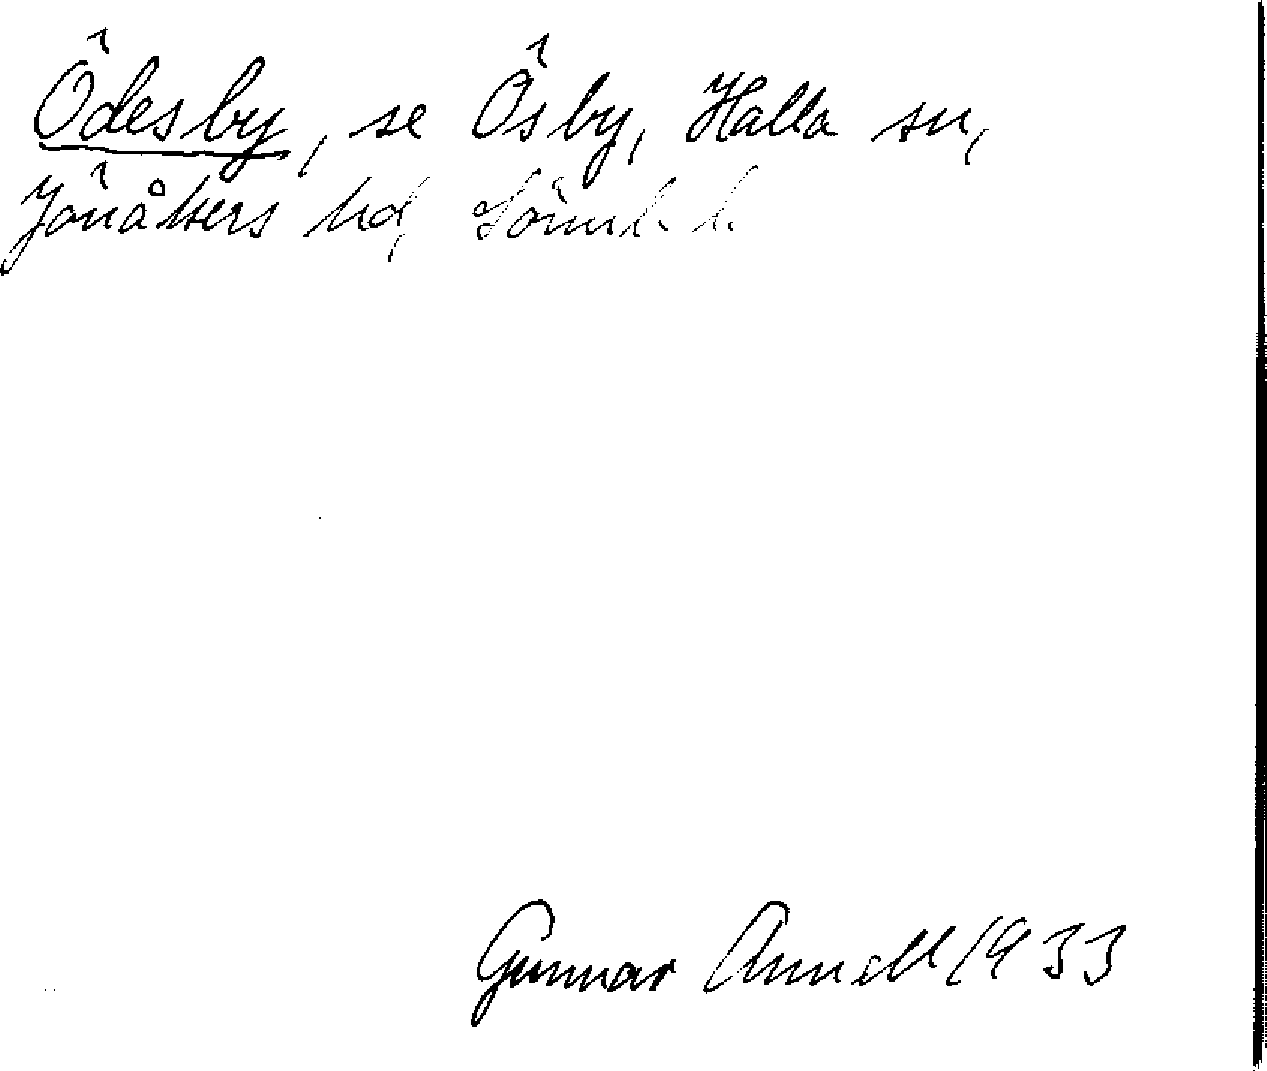 Ödesby, se Ösby, Halla sn,
Jönåkers hd, Sörml. l.
Gunnar Annell 1933